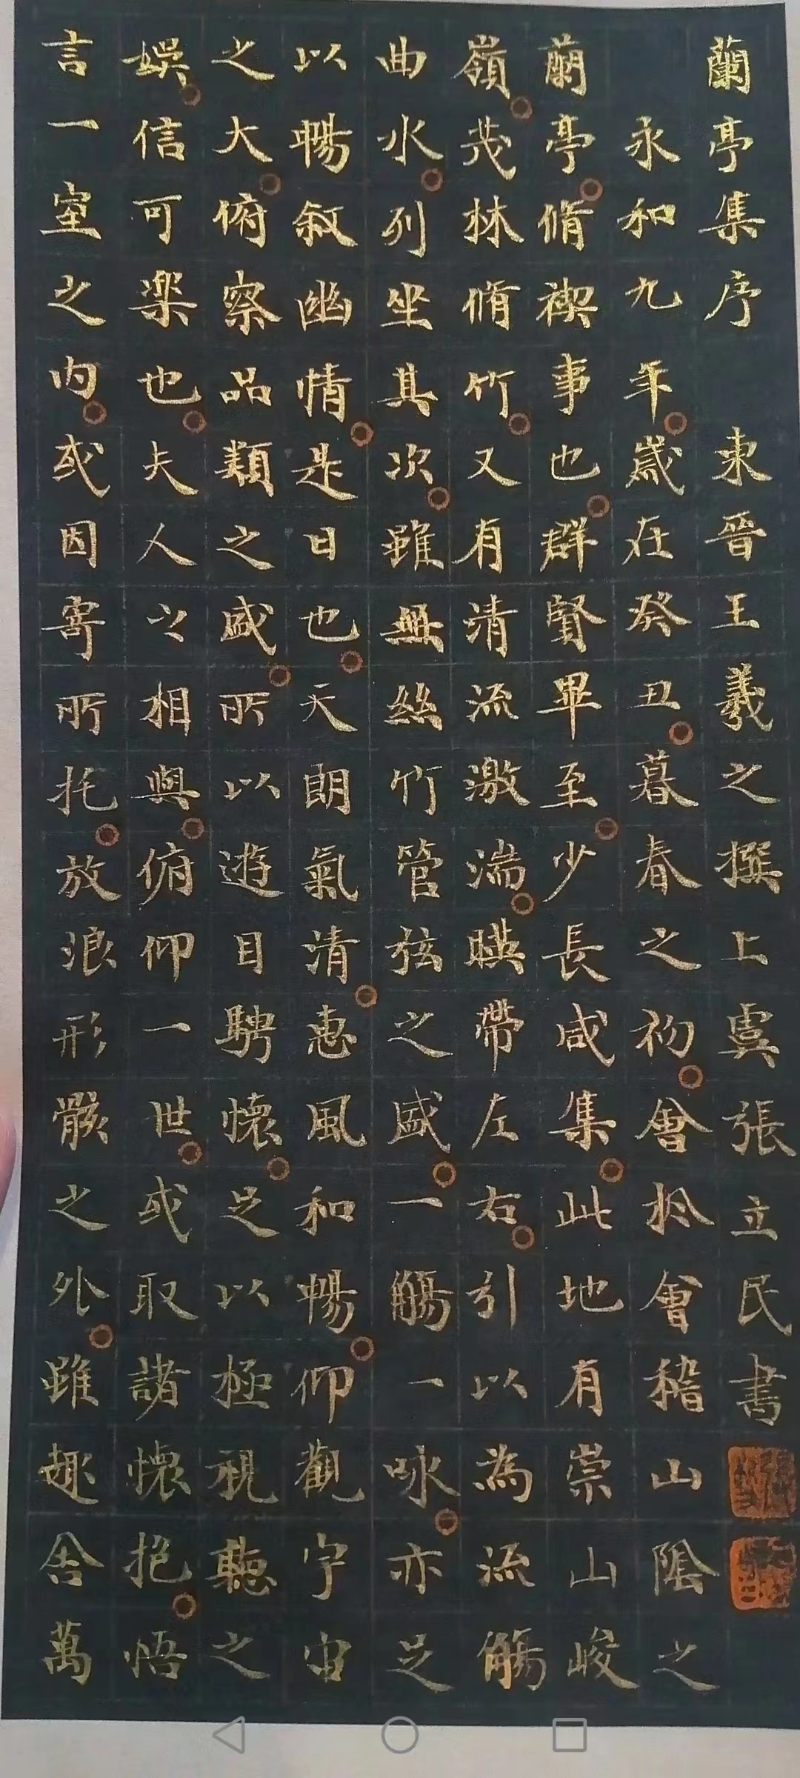 蘭亭集序 東晉王羲之撰上虞張立民書
永和九年歲在癸丑暮春之初會於會稽山陰之
蘭亭脩禊事也群賢畢至少長咸集此地有崇山峻
嶺茂林脩竹又有清流激湍暎帶左右引以為流觴
曲水列坐其次雖無絲竹管弦之盛一觴一咏亦足
以暢敘幽情是日也天朗氣清惠風和暢仰觀宇宙
之大俯察品類之盛所以遊目騁懷足以極視聽之
娛信可樂也夫人之相與俯仰一世或取諸懷抱悟
言一室之內或因寄所托放浪形骸之外雖趣舍萬